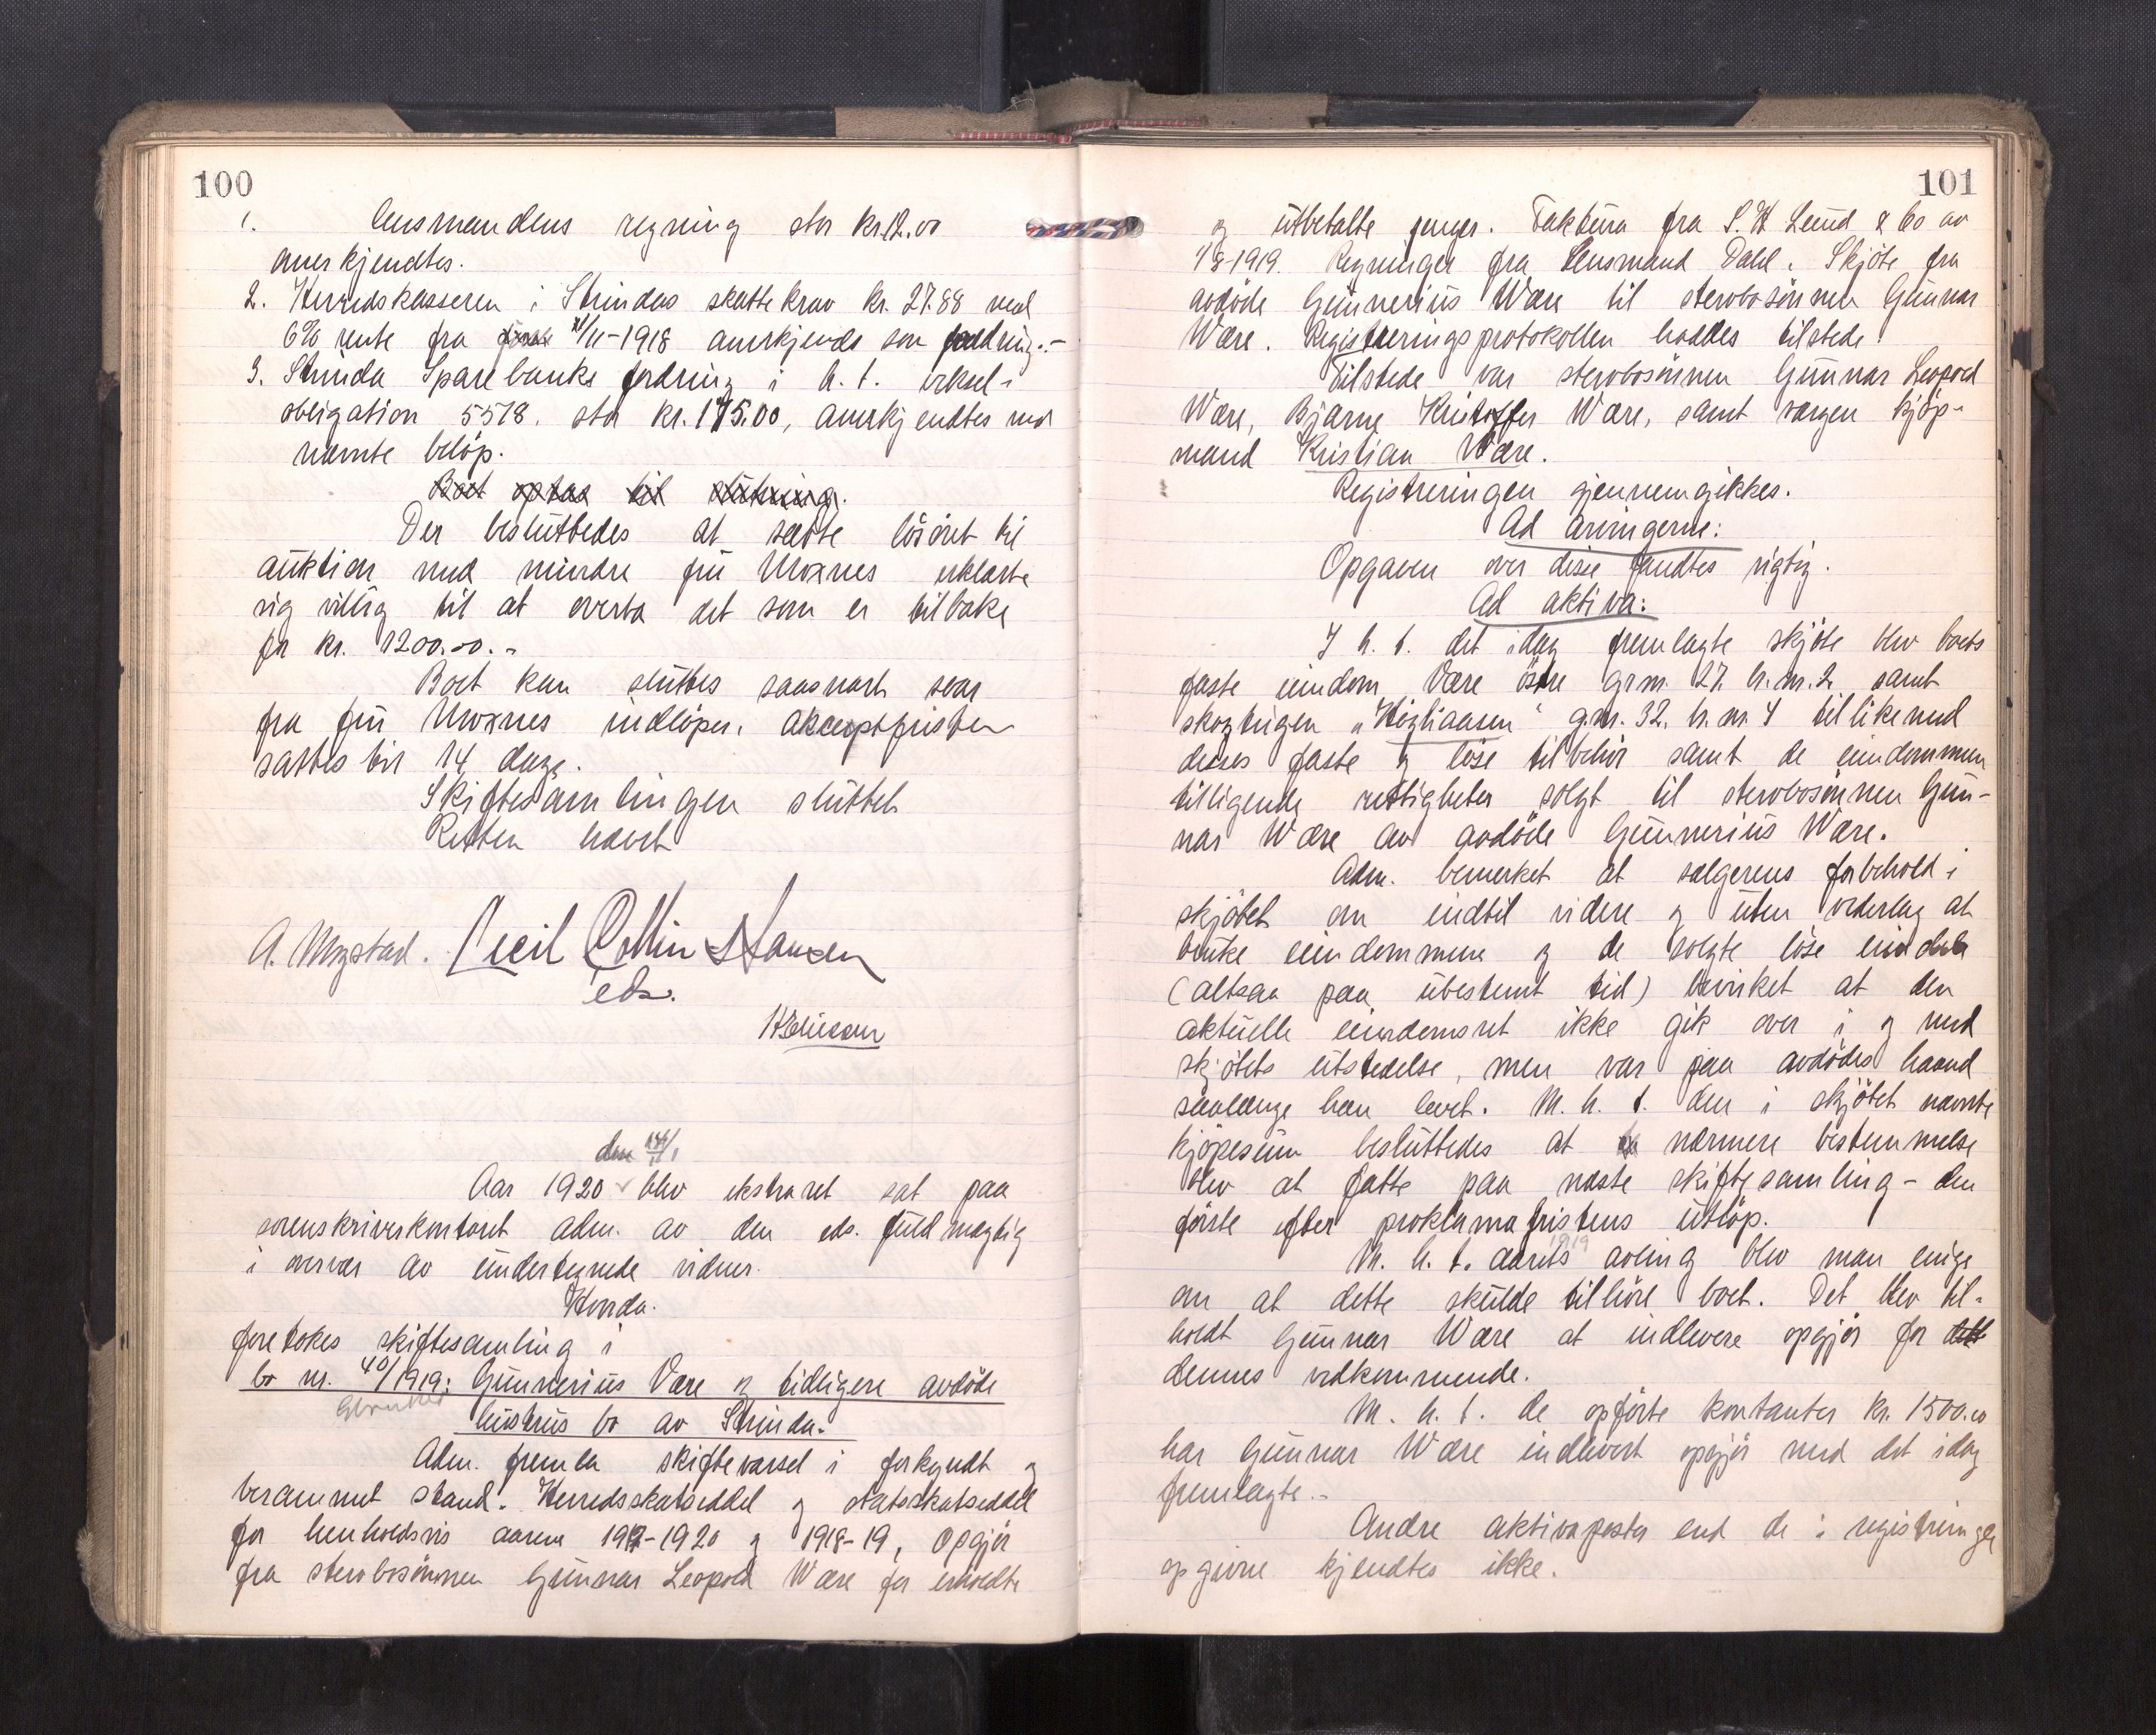 100
1. lensmandens regning stor kr. 12.00
anerkjendtes.
2. Herredskasseren i Strindas skattekrav kr. 27.88 med
6% rente fra 21/11-1918 anerkjends som fordring.-
3. Strinda Sparebanks fordring i h. t. veksel-
obligation 5578. stor kr. 175.00, anerkjendtes med
nævnte beløp.
Boet optas til slutning.
Der besluttedes at sætte løsøret til
auktion med mindre fru Moxnes erklærte
sig villig til at overta det som er tilbake
for kr. 1200.00.-
Boet kan sluttes saasnart svar
fra fru Moxnes indløper. Akceptfristen
sættes til 14 dage.
Skiftesamlingen sluttet
Retten hævet
A. Mogstad. Cecil Collin Hansen
eds.
den 14/1
Aar 1920 blev ekstraret sat paa
sorenskriverkontoret adm. av den eds. fuldmægtig
i overvær av undertegnede vidner.
Hvorda.
foretokes skiftesamling i
bo nr. 40/1919: Gunnerius Være og tidligere avdøde
hustrus bo av Strinda.
Adm. fremla skiftevarsel i forkyndt og
berammet stand. Herredsskatseddel og statsskatseddel
for henholdsvis aarene 1919-1920 og 1918-19, Opgjør
fra stervbosønnen Gunnar Leopold Wære for erholdte
101
og utbetalte penger. Faktura fra S. H Lund & Co av
1/8-1919. Regninger fra Lensmand Dahl. Skjøte fra
avdøde Gunnerius Wære til stervbosønnen Gunnar
Wære. Registreringsprotokollen haddes tilstede.
Tilstede var stervbosønnen Gunnar Leopold
Wære, Bjarne Kristoffer Wære, samt vergen kjøp-
mand Kristian Wære.
Registreringen gjennemgikkes.
Ad arvingerne:
Opgaven over disse fandtes rigtig.
Ad aktiva:
I h. t. det idag fremlagte skjøte blev boets
faste eiendom Være østre gr.nr. 27 br.nr. 2 samt
skogteigen "Høgliaasen" g.nr. 32. br. nr 4 tillikemed
disses faste og løse tilbehør samt de eiendommen
tilligende rettigheter solgt til stervbosønnen Gun-
nar Wære av avdøde Gunnerius Wære.
Adm. bemerket at sælgerens forbehold i
skjøtet om indtil videre og uten vederlag at
bruke eiendommene og de solgte løse eiendele
(altsaa paa ubestemt tid) bevirket at den
aktuelle eiendomsret ikke gik over i og med
skjøtets utstedelse, men var paa avdødes haand
saalænge han levet. M. h. t. den i skjøtet nævnte
kjøpesum besluttedes at nærmere bestemmelse
blev at fatte paa næste skiftesamling - den
første efter proklamafristens utløp.
1919
M. h. t. aarets avling blev man enige
om at dette skulde tilhøre boet. Det blev til-
holdt Gunnar Wære at indlevere opgjør for dett
dennes vedkommende.
M. h. t. de opførte kontanter kr. 1500.00
har Gunnar Wære indlevert opgjør med det idag
fremlagte.-
Andre aktivaposter end de i registreringen
opgivne kjendtes ikke.